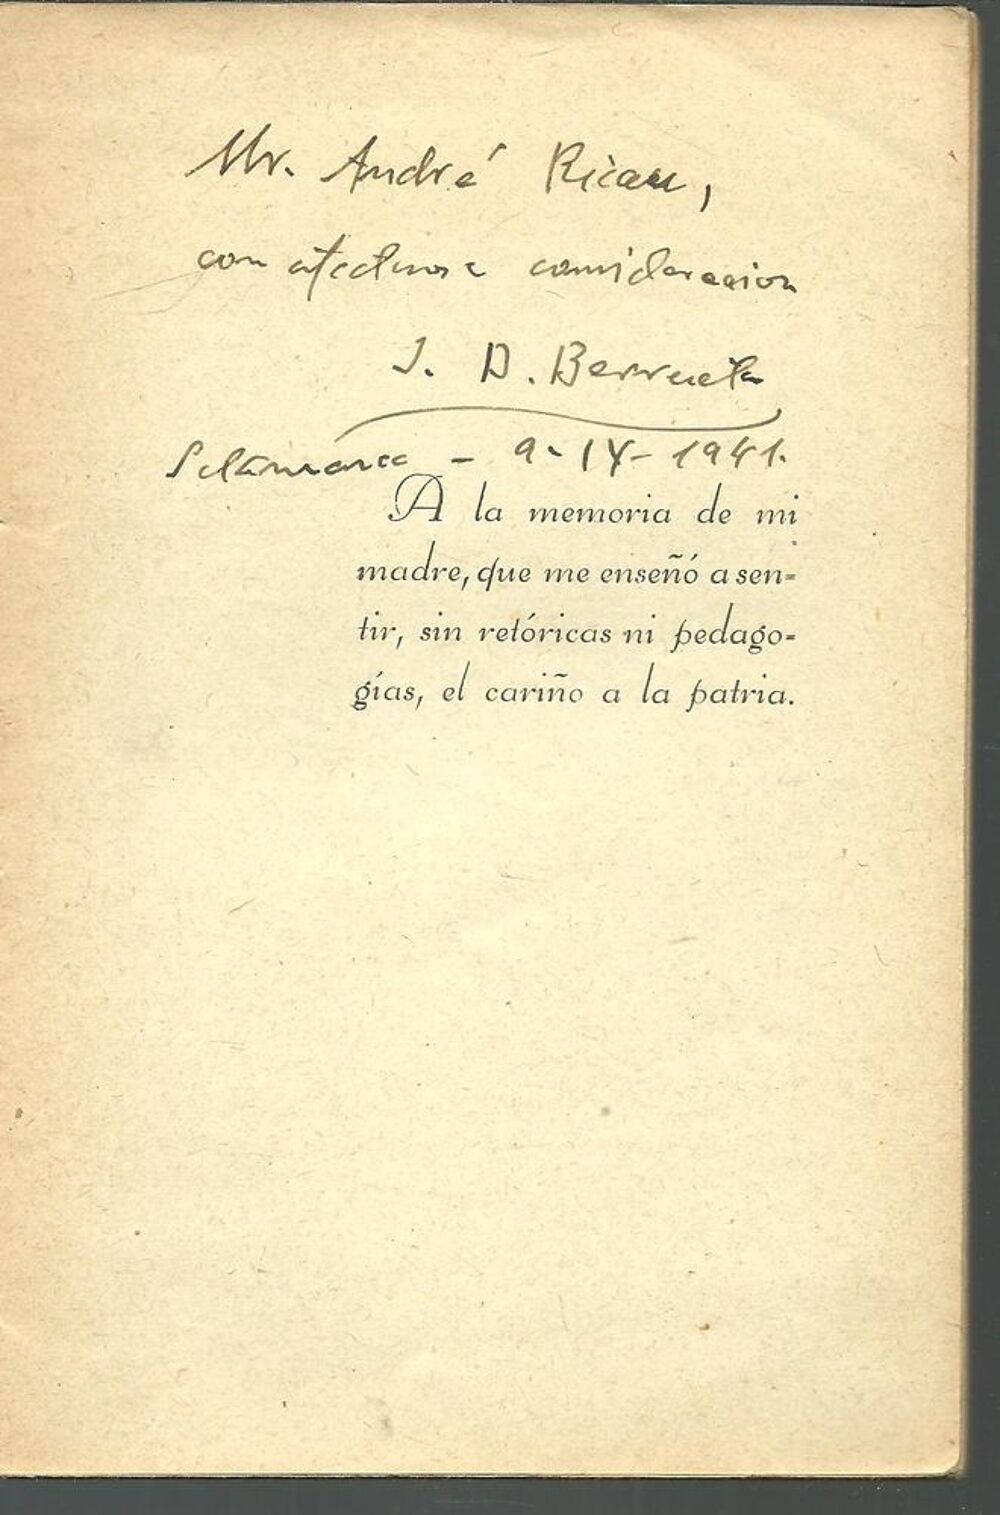 Mr. André Ricau,
con afectuosa consideracion
J. D. Berrueta
Salamanca - 9-IX-1941.
A la memoria de mi
madre, que me enseñó a sen-
tir, sin retóricas ni pedago-
gías, el cariño a la patria.